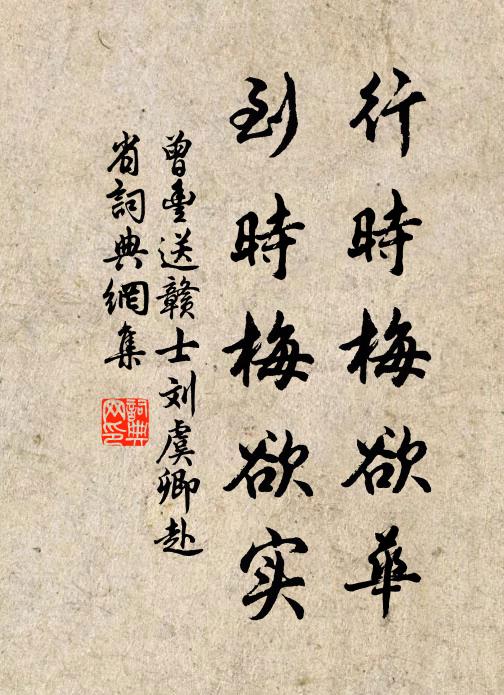 行時梅欲華
到時梅欲实
曾豊送贛士刘虞卿赴
省詞典網集
詞典
网印